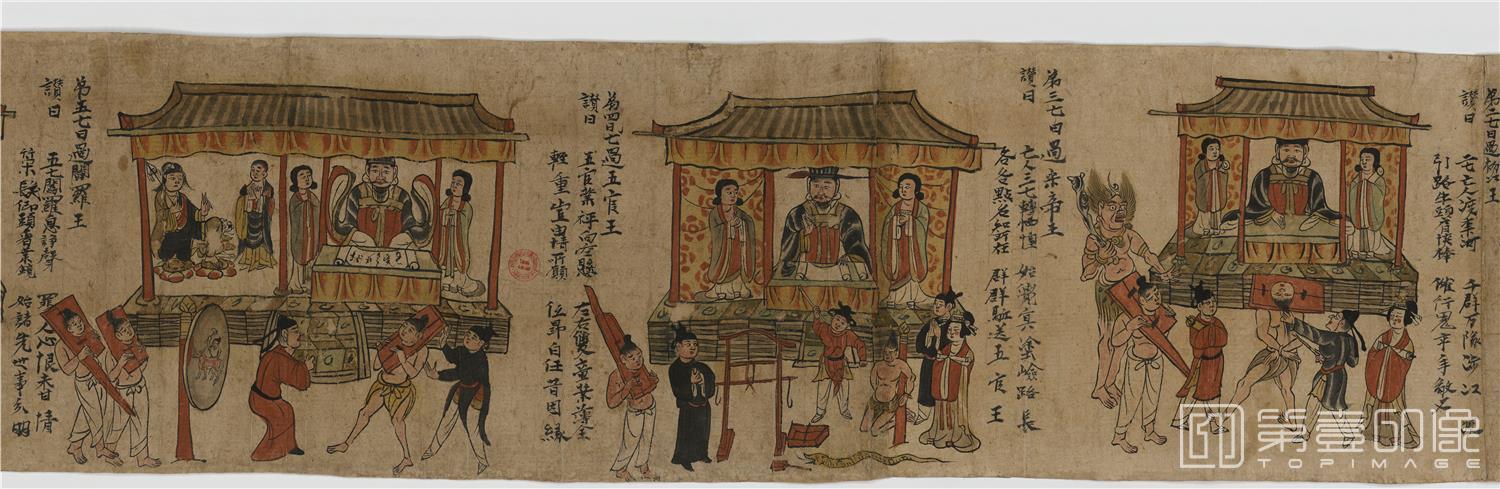 第二七日過初江王
讚曰
二七亡人渡奈河
千群万隊涉江
引路牛頭肩挾棒
催行鬼卒手擎
第三七日過宋帝王
讚曰
亡人三七轉恓惶
始覺冥塗險路長
各各點名知所在
群群驅送五官王
第四七日過五官王
讚曰
五官業秤向空懸
左右雙童業簿全
輕重豈由情所願
位昂自任昔因緣
第五七日過閻羅王
讚曰
五七閻羅息諍聲
罪人心恨未甘情
策髮仰頭看業鏡
始諸先世事分明
第壹印像
TOPIMAGE